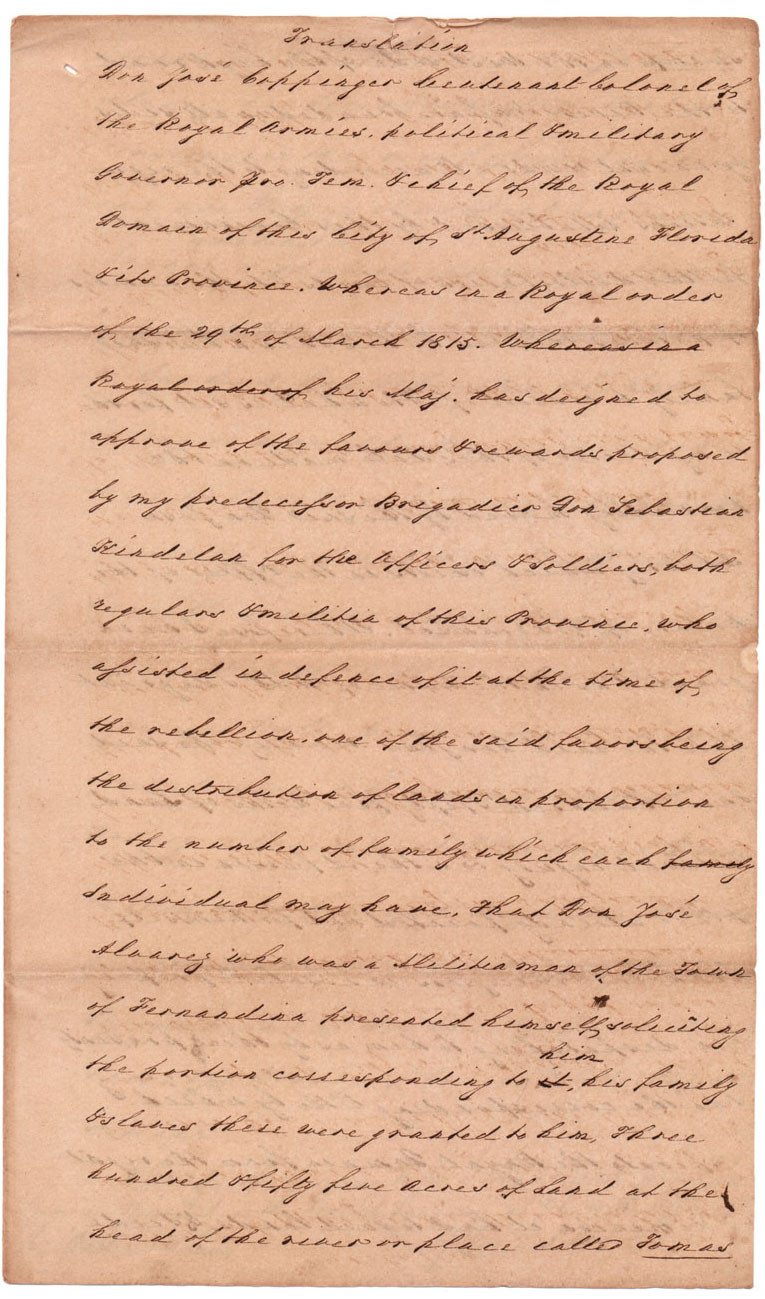 Translation
Don José Coppinger lieutenant Colonel of
the Royal Armies, political & military
Governor Pro. Tem. & chief of the Royal
Domain of this City of St Augustine Florida
& its Province. Whereas in a Royal order
of the 29th of March 1815. Whereas in a
Royal order of his Maj. has deigned to
approve of the favours & rewards proposed
by my predecessor Brigadier Don Sebastian
Kindelan for the Officers & Soldiers, both
regulars & militia of this Province, who
assisted in defence of it at the time of
the rebellion, one of the said favors being
the distribution of lands in proportion
to the number of family which each family
Individual may have, That Don José
Alvarez who was a Militia man of the Town
of Fernandina presented himself, soliciting
him
the portion corresponding to it, his family
& slaves there were granted to him, Three
hundred & fifty five acres of Land at the
head of the river or place called Tomas